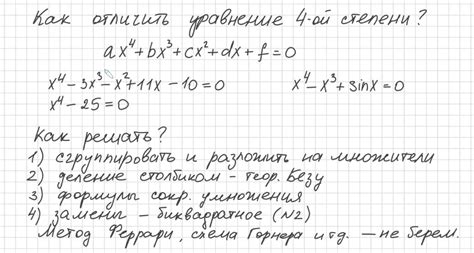 Как отличить уравнение 4-ой степени?
ax⁴+bx³+cx²+dx+f=0
x⁴-3x³-x²+11x-10=0 x⁴-x³+sinx=0
x⁴-25=0
Как решать?
1) сгруппировать и разложить на множители
2) деление столбиком - теор. Безу
3) формулы сокр. умножения
4) замены - биквадратное (N2)
Метод Феррари, схема Горнера и тд. - не берем.